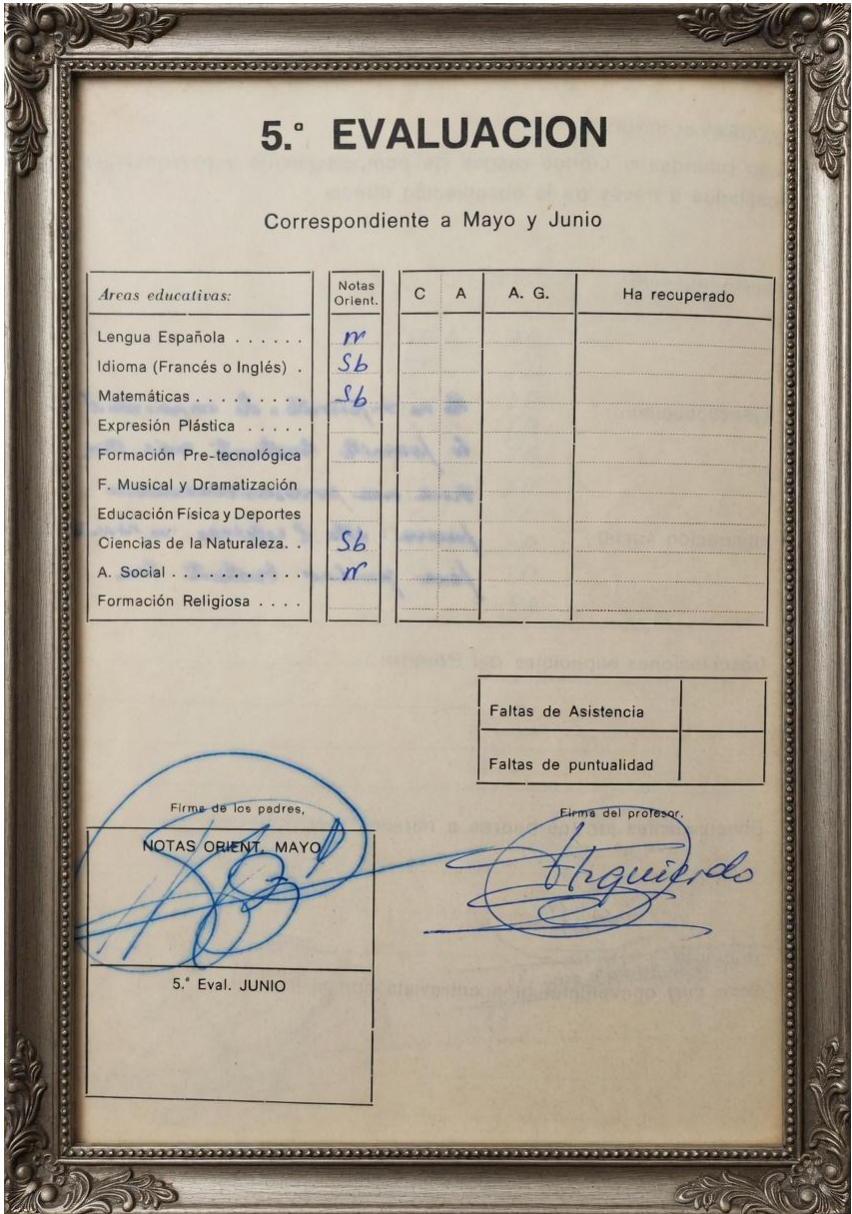 5.° EVALUACION
Correspondiente a Mayo y Junio
Areas educativas: Notas Orient. C A A. G. Ha recuperado
Lengua Española . . . . . . n
Idioma (Francés o Inglés) . Sb
Matemáticas . . . . . . . . . Sb
Expresión Plástica . . . . .
Formación Pre-tecnológica
F. Musical y Dramatización
Educación Física y Deportes
Ciencias de la Naturaleza. . Sb
A. Social . . . . . . . . . . n
Formación Religiosa . . . .
Faltas de Asistencia
Faltas de puntualidad
Firma de los padres,
NOTAS ORIENT. MAYO
5.ª Eval. JUNIO
Firma del profesor.
Izquierdo